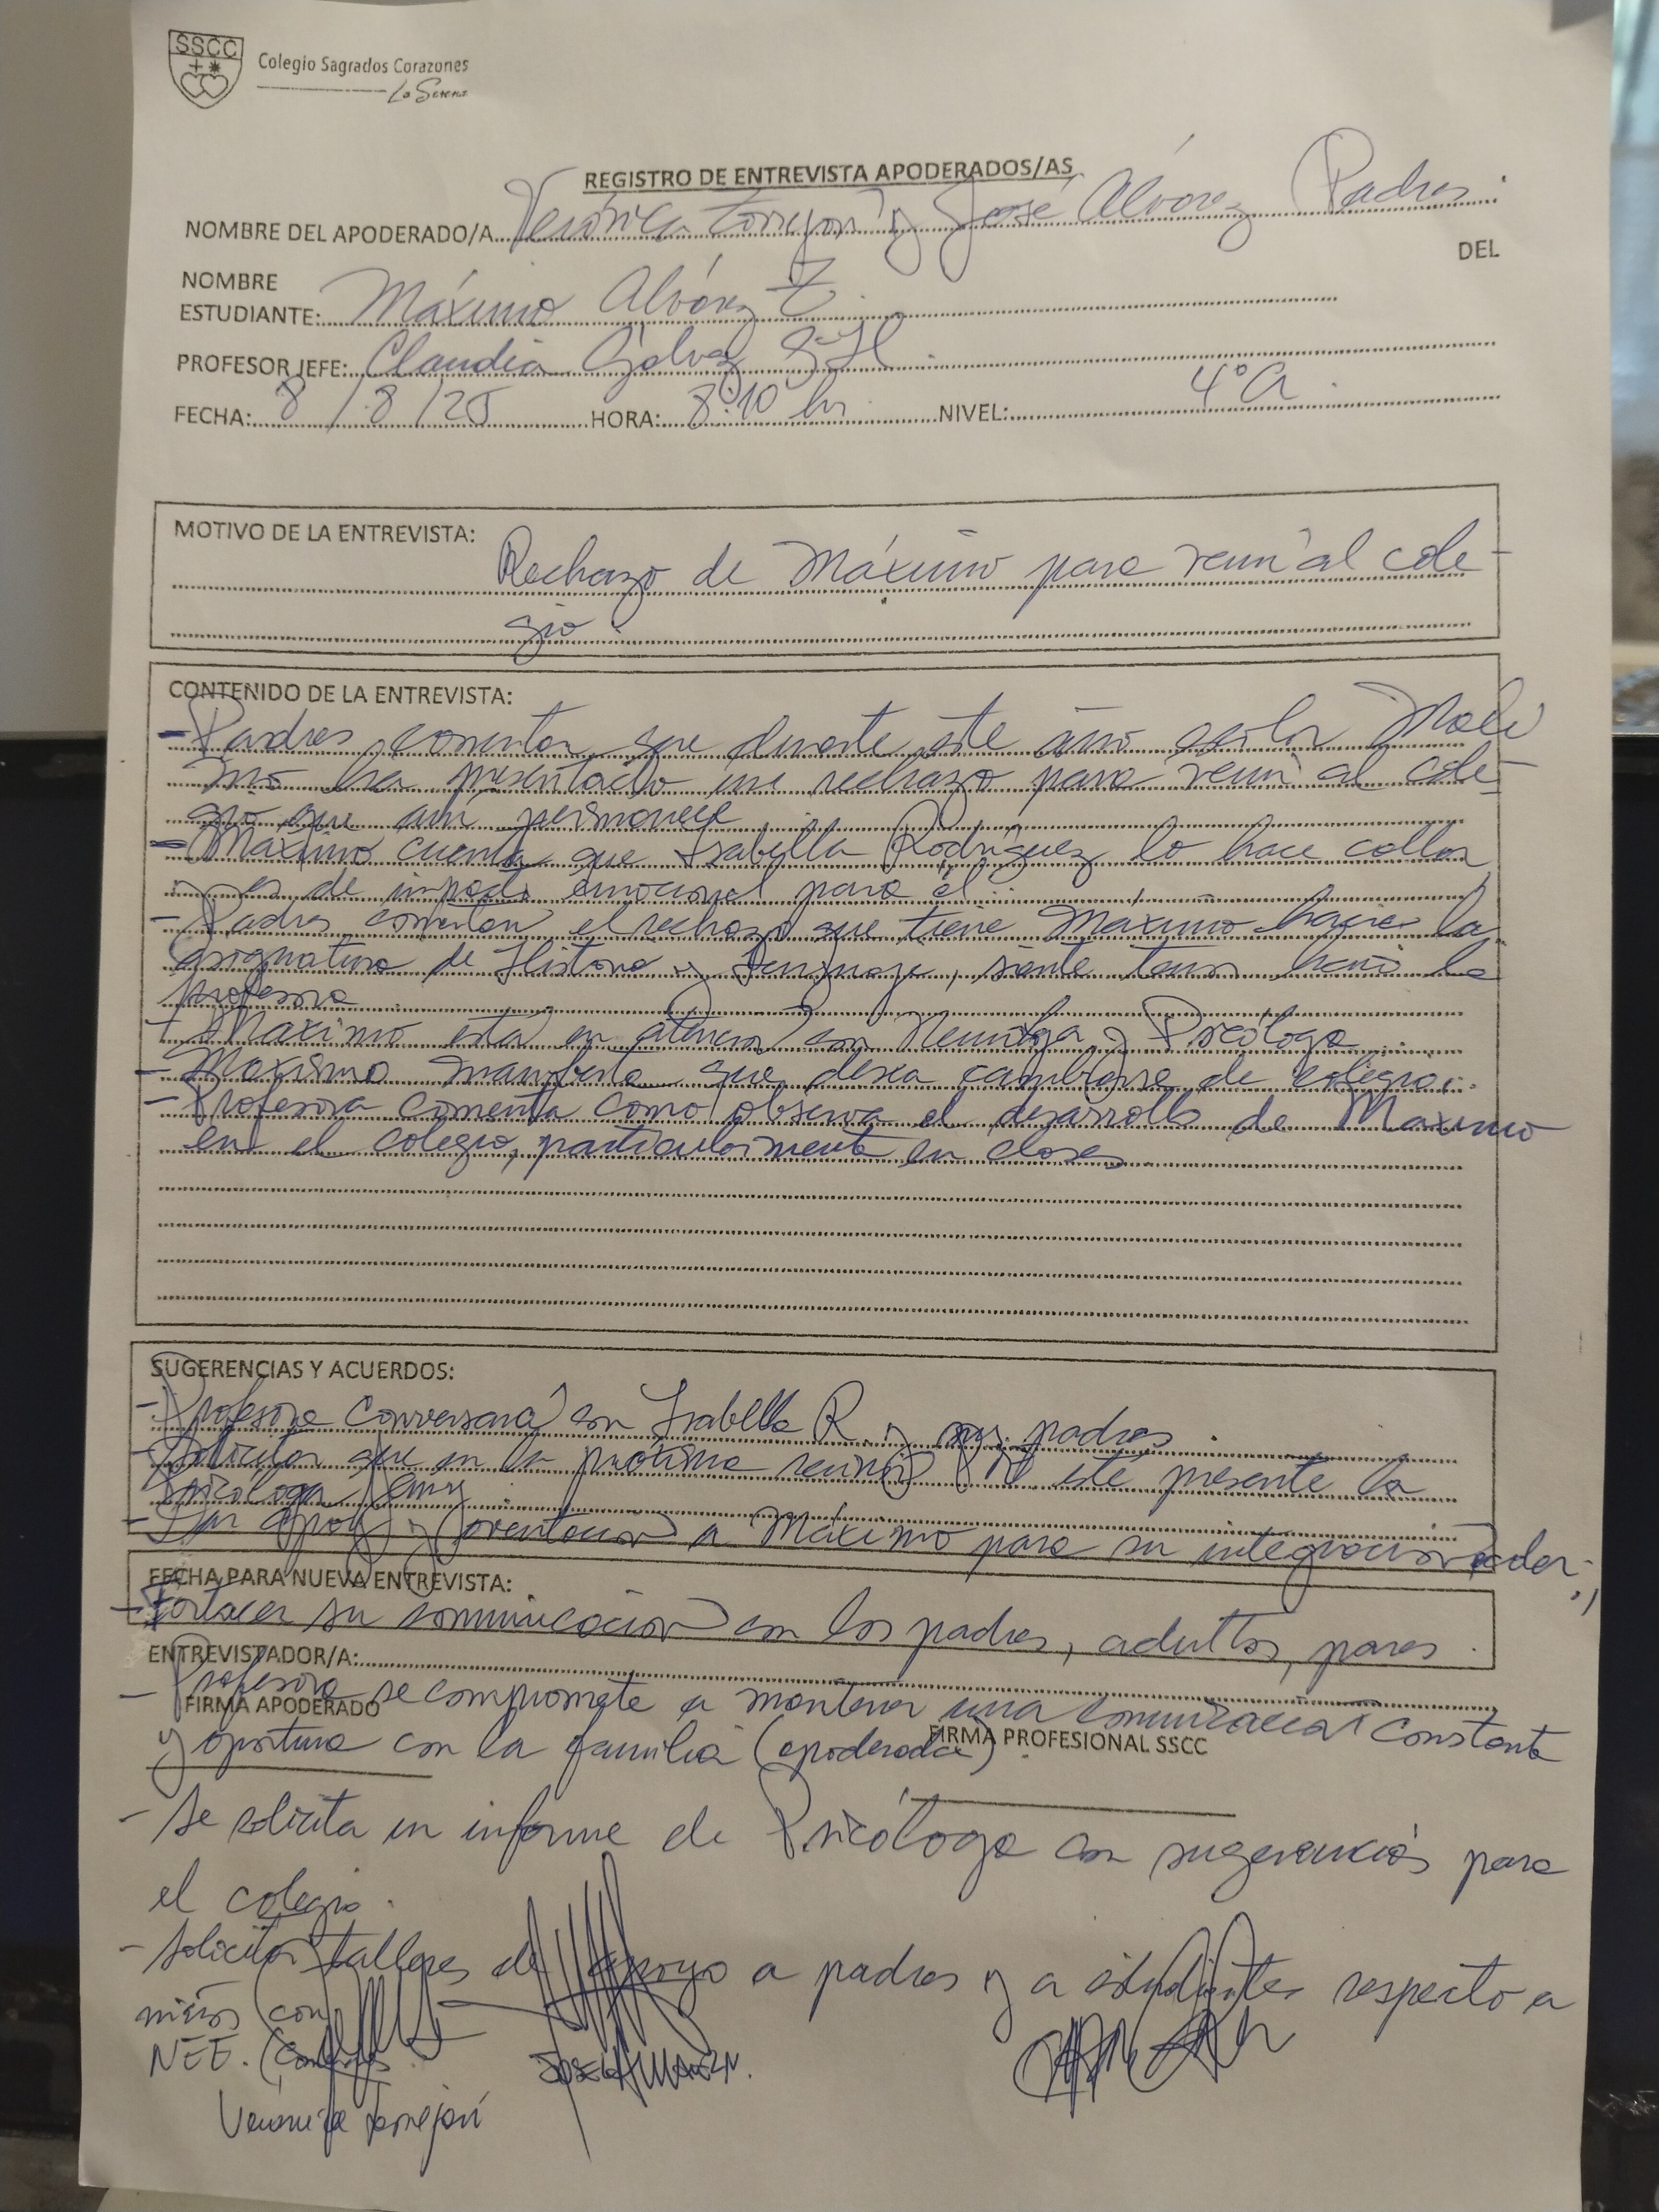 SSCC
Colegio Sagrados Corazones
La Serena
REGISTRO DE ENTREVISTA APODERADOS/AS
NOMBRE DEL APODERADO/A Verónica Torrejón y José Álvarez Padres.
DEL
NOMBRE
ESTUDIANTE: Máximo Alvárez T.
PROFESOR JEFE: Claudia Gálvez
FECHA: 8/8/25 HORA: 8:10 hr NIVEL: 4°A.
MOTIVO DE LA ENTREVISTA:
Rechazo de Máximo para venir al cole-
gio.
CONTENIDO DE LA ENTREVISTA:
- Padres comentan que durante este año escolar Máxi
mo ha presentado un rechazo para venir al cole-
gio que aún permanece
- Máximo cuenta que Isabella Rodríguez lo hace callar
y es de impacto emocional para él.
- Padres comentan el rechazo que tiene Máximo hacia la
asignatura de Historia y Lenguaje, siente temor hacia la
profesora
- Máximo está en atención con Neuróloga y Psicólogo
- Máximo manifiesta que desea cambiarse de colegio.
- Profesora comenta como observa el desarrollo de Máximo
en el colegio, particularmente en clases
SUGERENCIAS Y ACUERDOS:
- Profesora conversará con Isabella R. y sus padres.
- Solicitar que en la próxima reunión esté presente la
Psicóloga
- Dar apoyo y orientación a Máximo para su integración escolar
FECHA PARA NUEVA ENTREVISTA:
- Fortalecer su comunicación con los padres, adultos, pares.
ENTREVISTADOR/A:
- Profesora se compromete a mantener una comunicación constante
FIRMA APODERADO
y oportuna con la familia (apoderada).
FIRMA PROFESIONAL SSCC
- Se solicita un informe de Psicólogo con sugerencias para
el colegio.
- Solicitar talleres de apoyo a padres y a estudiantes respecto a
niños con
NEE.
Verónica Torrejón